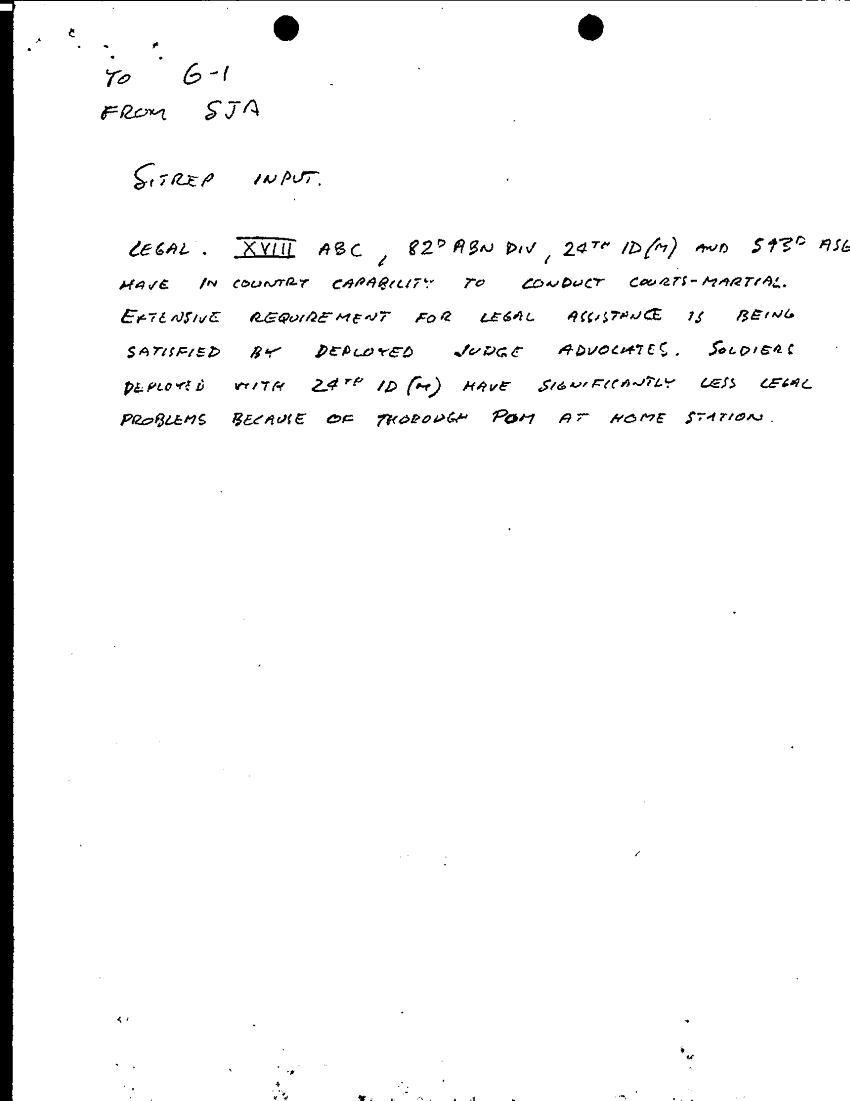 TO G-1
FROM SJA
SITREP INPUT.
LEGAL. XVIII ABC, 82D ABN DIV, 24TH ID(M) AND 593D ASG
HAVE IN COUNTRY CAPABILITY TO CONDUCT COURTS-MARTIAL.
EXTENSIVE REQUIREMENT FOR LEGAL ASSISTANCE IS BEING
SATISFIED BY DEPLOYED JUDGE ADVOCATES. SOLDIERS
DEPLOYED WITH 24TH ID (M) HAVE SIGNIFICANTLY LESS LEGAL
PROBLEMS BECAUSE OF THOROUGH POM AT HOME STATION.